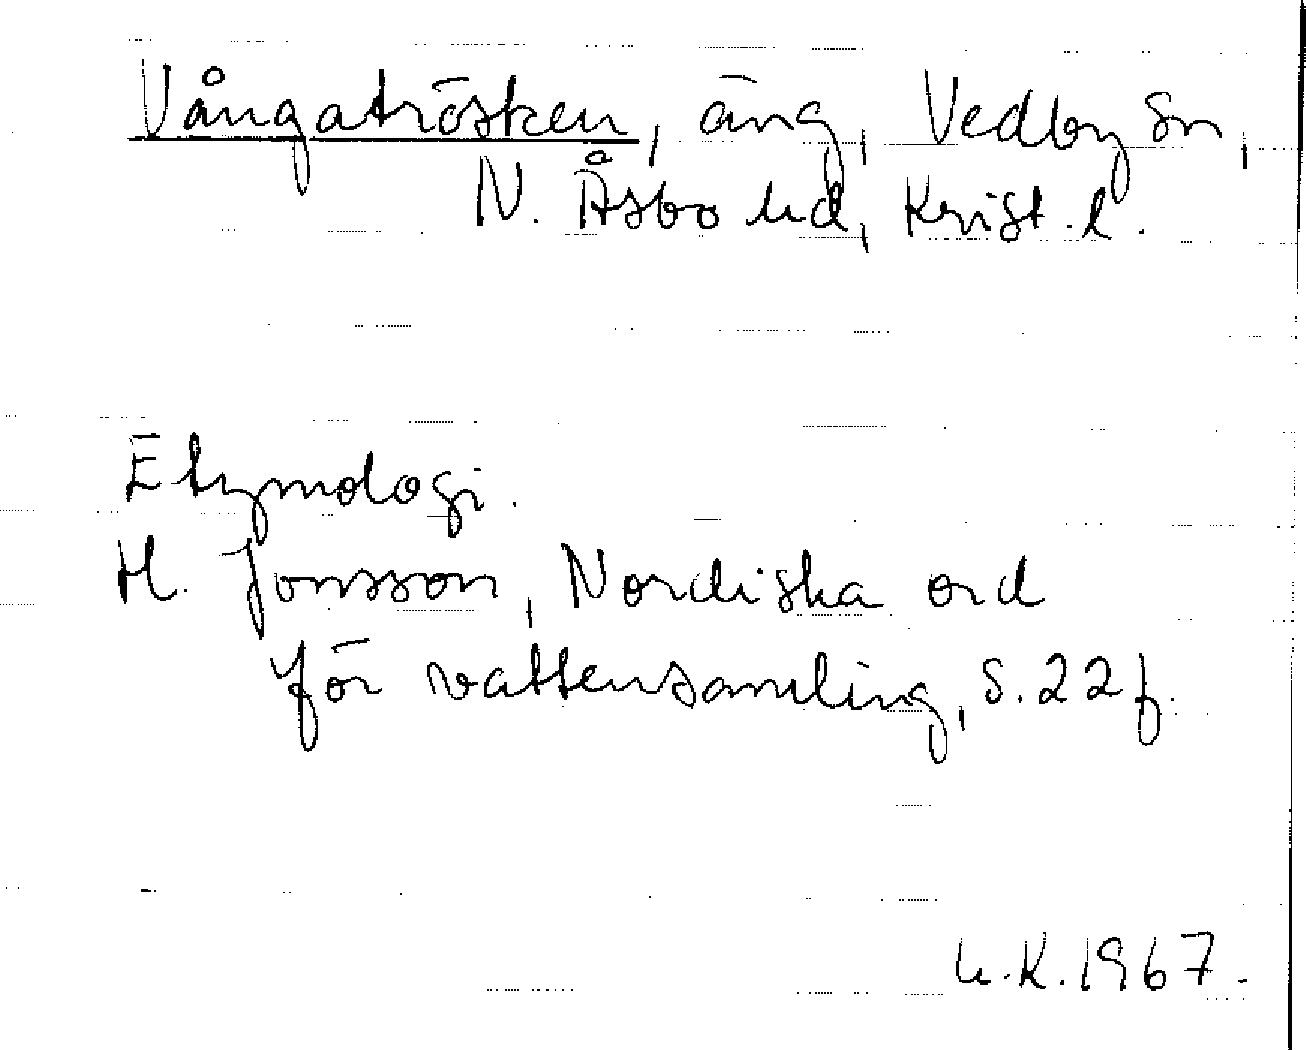 Vångatrösken, äng, Vedby sn,
N. Åsbo hd, Krist. l.
Etymologi.
H. Jonsson, Nordiska ord
för vattensamling, s. 22 f.
U.K. 1967.